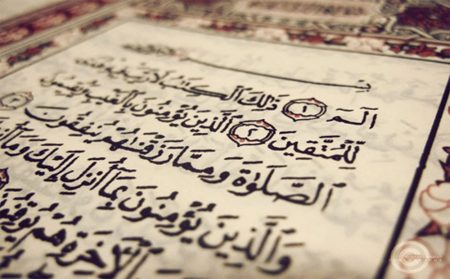 الٓمٓ ١ ذَٰلِكَ ٱلْكِتَٰبُ لَا رَيْبَ فِيهِ
لِّلْمُتَّقِينَ ٢ ٱلَّذِينَ يُؤْمِنُونَ بِٱلْغَيْبِ
ٱلصَّلَوٰةَ وَمِمَّا رَزَقْنَٰهُمْ يُنفِقُونَ
وَٱلَّذِينَ يُؤْمِنُونَ بِمَآ أُنزِلَ إِلَيْكَ وَمَآ
ٱلْءَاخِرَةِ هُمْ يُوقِنُو